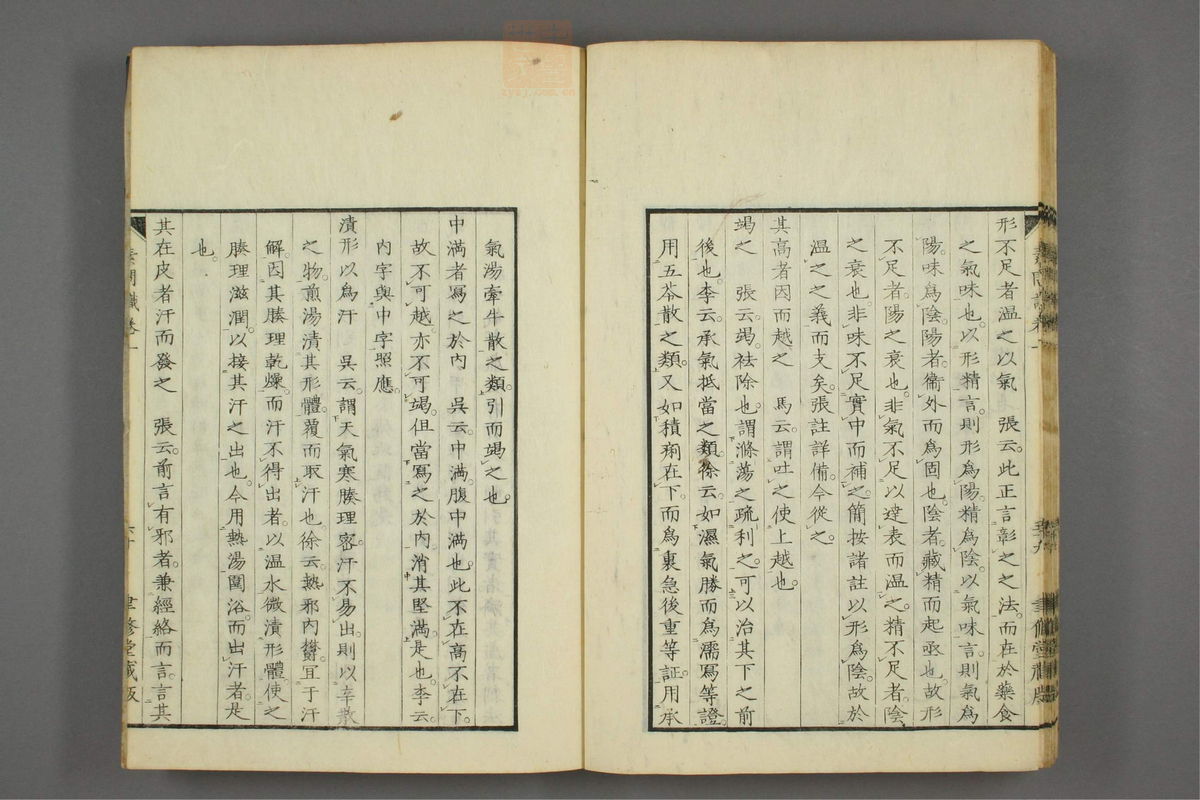 形不足者溫之以氣　張云。此正言彰之之法。而在於藥食
之氣味也。以形精言。則形爲陽。精爲陰。以氣味言。則氣爲
陽。味爲陰。陽者。衞外而爲固也。陰者。藏精而起亟也。故形
不足者。陽之衰也。非氣不足以達表而溫之。精不足者。陰
之衰也。非味不足實中而補之。簡按諸註以形爲陰。故於
溫之之義而支矣。張註詳備。今從之。
其高者因而越之　馬云。謂吐之使上越也。
竭之　張云。竭。祛除也。謂滌蕩之疏利之。可以治其下之前
後也。李云。承氣抵當之類。徐云。如濕氣勝而爲濡寫等證。
用五苓散之類。又如積痢在下。而爲裏急後重等証。用承
氣湯牽牛散之類。引而竭之也。
中滿者寫之於內　吳云。中滿。腹中滿也。此不在高不在下。
故不可越。亦不可竭。但當寫之於內。消其堅滿。是也。李云。
內字與中字照應。
漬形以爲汗　吳云。謂天氣寒腠理密。汗不易出。則以辛散
之物。煎湯漬其形體。覆而取汗也。徐云。熱邪內鬱。宜于汗
解。因其腠理乾燥。而汗不得出者。以溫水微漬形體。使之
腠理滋潤。以接其汗之出也。今用熱湯圍浴。而出汗者。是
也。
其在皮者汗而發之　張云。前言有邪者。兼經絡而言。言其
素問識卷一
六十
聿修堂藏版